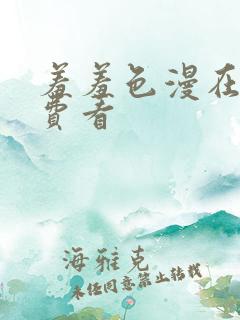 羞羞色漫在
费者
海雅克
未经同意禁止转载